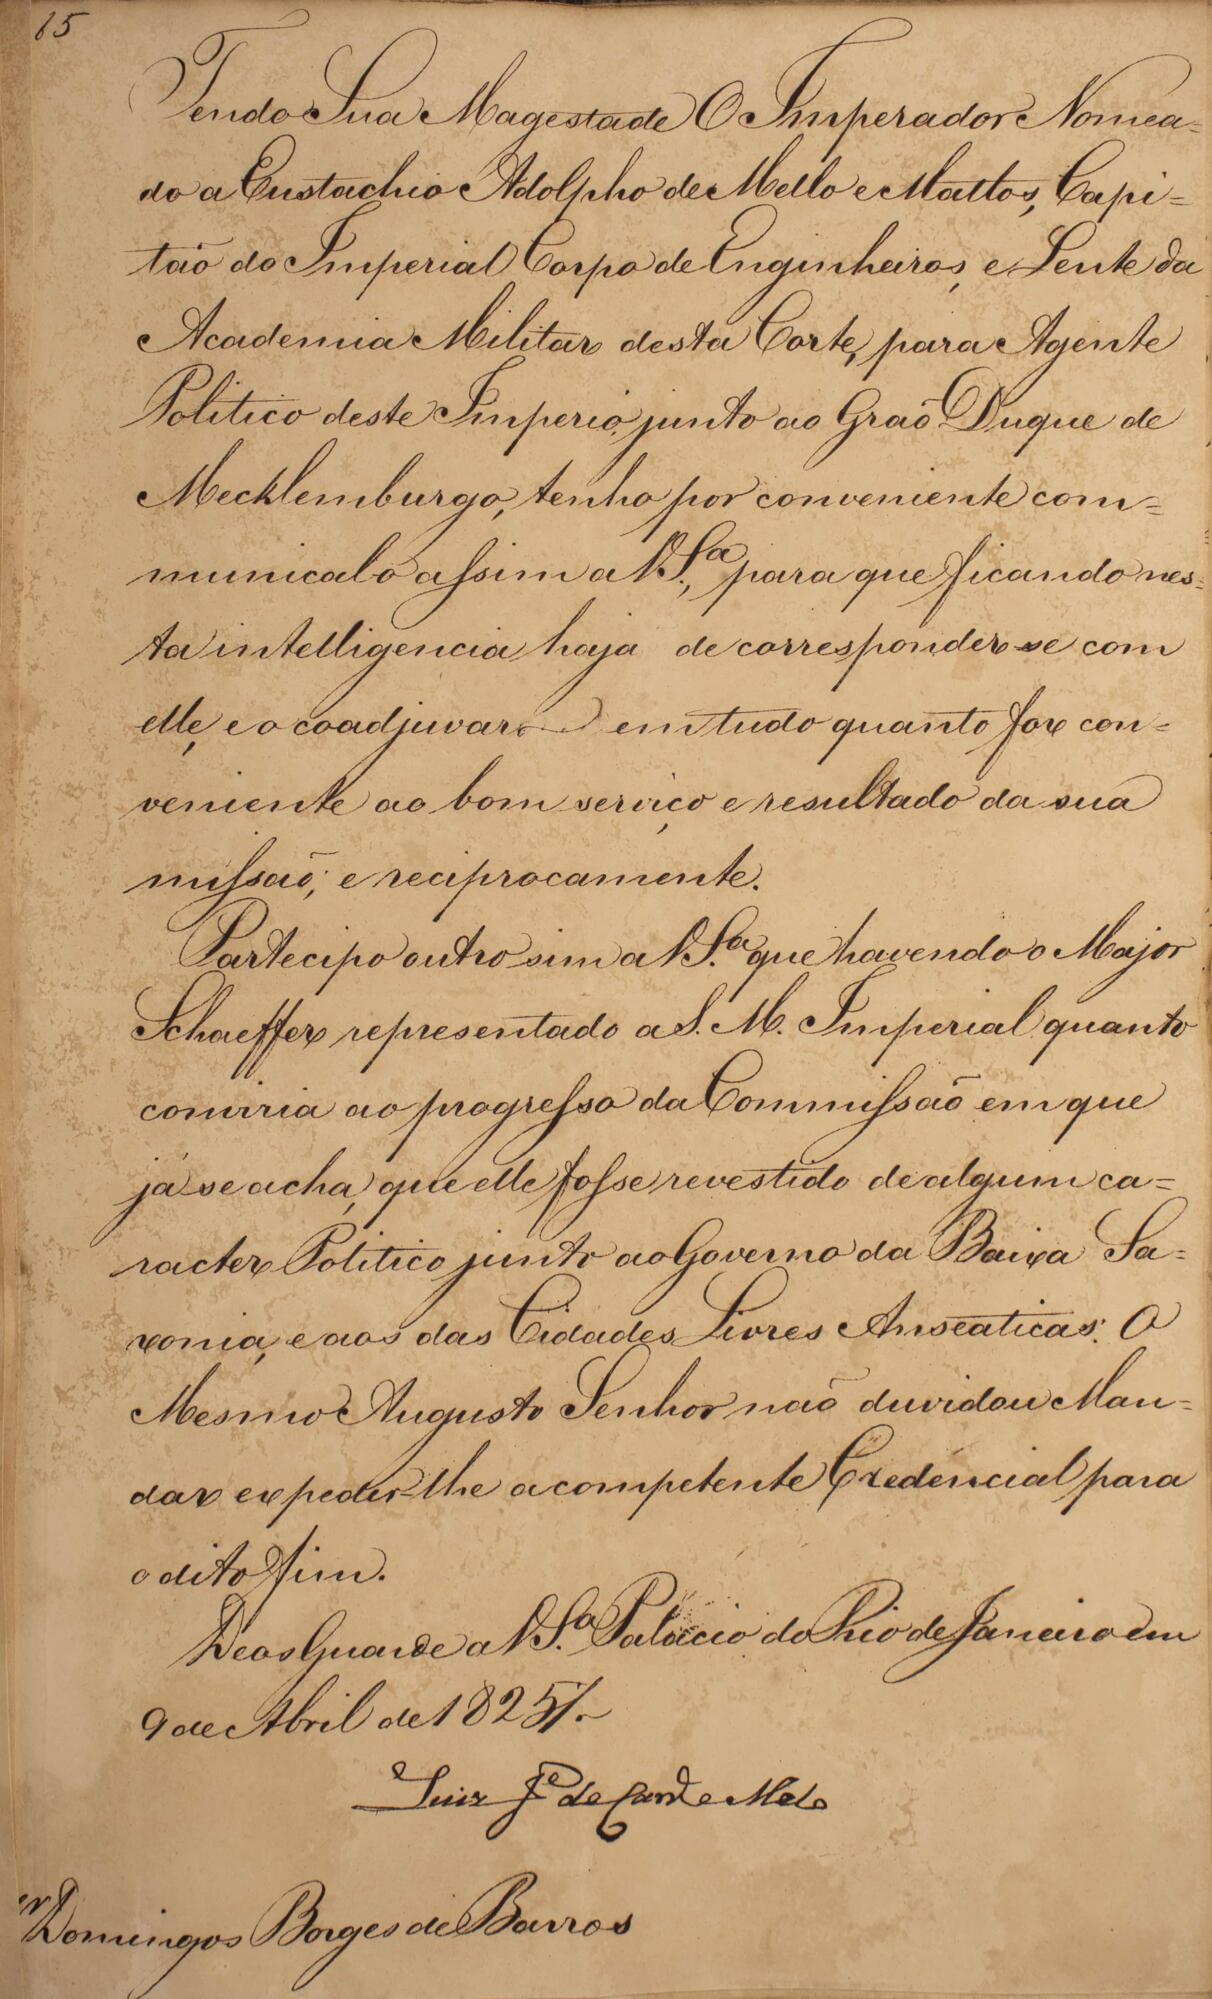 15
Tendo Sua Magestade O Imperador Nomea=
do a Eustachio Adolpho de Mello e Mattos, Capi=
tão do Imperial Corpo de Enginheiros, e Lente da
Academia Militar desta Corte, para Agente
Politico deste Imperio junto ao Grão Duque de
Mecklemburgo, tenho por conveniente com=
municalo assim a V.S.ª, para que ficando nes=
ta intelligencia haja de corresponder-se com
elle, e o coadjuvar em tudo quanto for con=
veniente ao bom serviço e resultado da sua
missão; e reciprocamente.
Partecipo outro sim a V.S.ª que havendo o Major
Schaeffer representado a S. M. Imperial quanto
conviria ao progresso da Commissão em que
já se acha, que elle fosse revestido de algum ca=
racter Politico junto ao Governo da Baixa Sa=
xonia, e aos das Cidades Livres Anseaticas: O
Mesmo Augusto Senhor não duvidou Man=
dar expedir-lhe a competente Credencial para
o dito fim.
Deos Guarde a V.S.ª Palacio do Rio de Janeiro em
9 de Abril de 1825/.
Luiz J.e de Carv.º e Mello
Domingos Borges de Barros